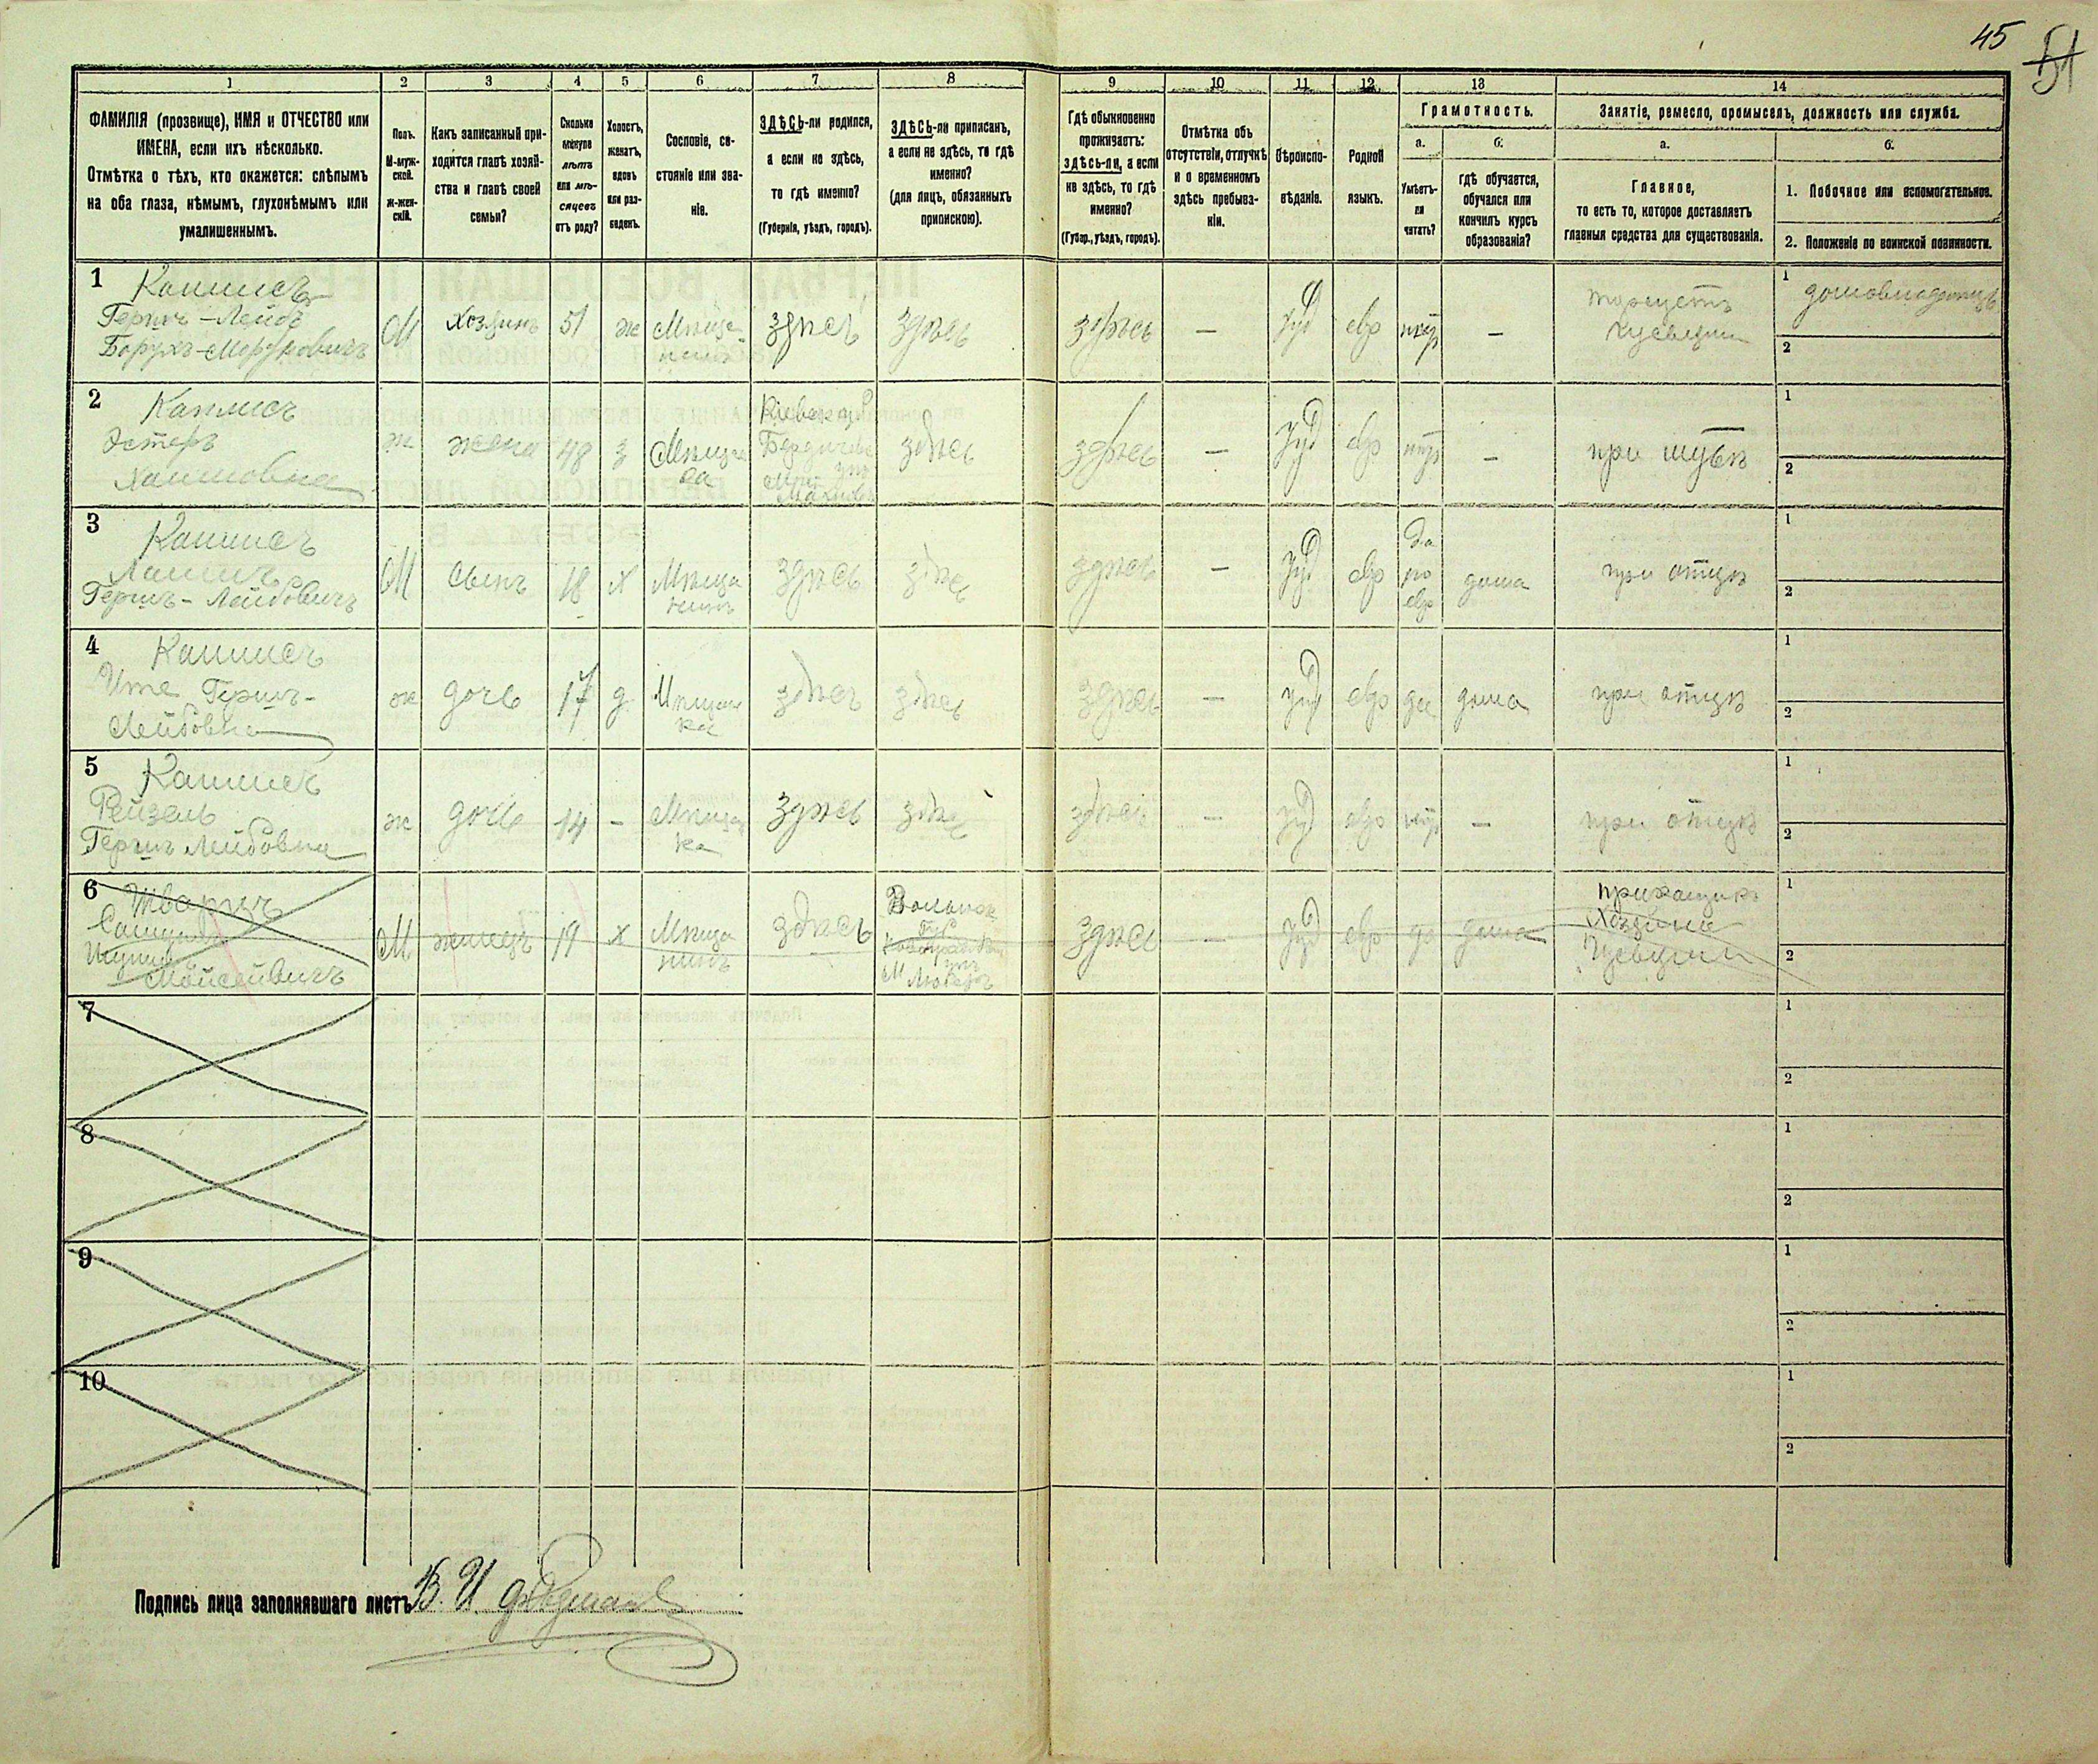 45
51
1
2
3
4
5
6
7
8
9
10
11
12
13
14
ФАМИЛІЯ (прозвище), ИМЯ и ОТЧЕСТВО или
ИМЕНА, если ихъ нѣсколько.
Отмѣтка о тѣхъ, кто окажется: слѣпымъ
на оба глаза, нѣмымъ, глухонѣмымъ или
умалишеннымъ.
Полъ.
М-муж-
ской.
Ж-жен-
скій.
Какъ записанный при-
ходится главѣ хозяй-
ства и главѣ своей
семьи?
Сколько
минуло
лѣтъ
или мѣ-
сяцевъ
отъ роду?
Холостъ,
женатъ,
вдовъ
или раз-
веденъ.
Сословіе, со-
стояніе или зва-
ніе.
ЗДѢСЬ-ли родился,
а если не здѣсь,
то гдѣ именно?
(Губернія, уѣздъ, городъ).
ЗДѢСЬ-ли приписанъ,
а если не здѣсь, то гдѣ
именно?
(для лицъ, обязанныхъ
припискою).
Гдѣ обыкновенно
проживаетъ:
здѣсь-ли, а если
не здѣсь, то гдѣ
именно?
(Губер., уѣздъ, городъ).
Отмѣтка объ
отсутствіи, отлучкѣ
и о временномъ
здѣсь пребыва-
ніи.
Вѣроиспо-
вѣданіе.
Родной
языкъ.
Грамотность.
а.
Умѣетъ-
ли
читать?
б.
гдѣ обучается,
обучался или
кончилъ курсъ
образованія?
Занятіе, ремесло, промыселъ, должность или служба.
а.
Главное,
то есть то, которое доставляетъ
главныя средства для существованія.
б.
1. Побочное или вспомогательное.
2. Положеніе по воинской повинности.
1
Гершъ-Лейбъ
М
Хозяинъ
51
ж
Мѣща-
нинъ
здѣсь
здѣсь
здѣсь
—
Іуд
евр
—
1
домовладѣлецъ
2
2
Эстеръ
Хаимовна
ж
жена
48
з
Мѣщан
ка
Кіевской
здѣсь
здѣсь
—
Іуд
евр
—
при мужѣ
1
2
3
Гершъ-Лейбовичъ
М
сынъ
18
х
Мѣща
нинъ
здѣсь
здѣсь
здѣсь
—
Іуд
евр
да
по
евр
дома
при отцѣ
1
2
4
Ите Гершъ-
Лейбовна
ж
дочь
17
д
Мѣщан
ка
здѣсь
здѣсь
здѣсь
—
Іуд
евр
да
дома
при отцѣ
1
2
5
Рейзель
Гершъ Лейбовна
ж
дочь
14
–
Мѣщан
ка
здѣсь
здѣсь
здѣсь
—
Іуд
евр
—
при отцѣ
1
2
6
Шварцъ
М
жилецъ
19
х
Мѣща
нинъ
здѣсь
здѣсь
—
Іуд
евр
да
дома
прикащикъ
Хозяина
1
2
7
1
2
8
1
2
9
1
2
10
1
2
Подпись лица заполнявшаго листъ